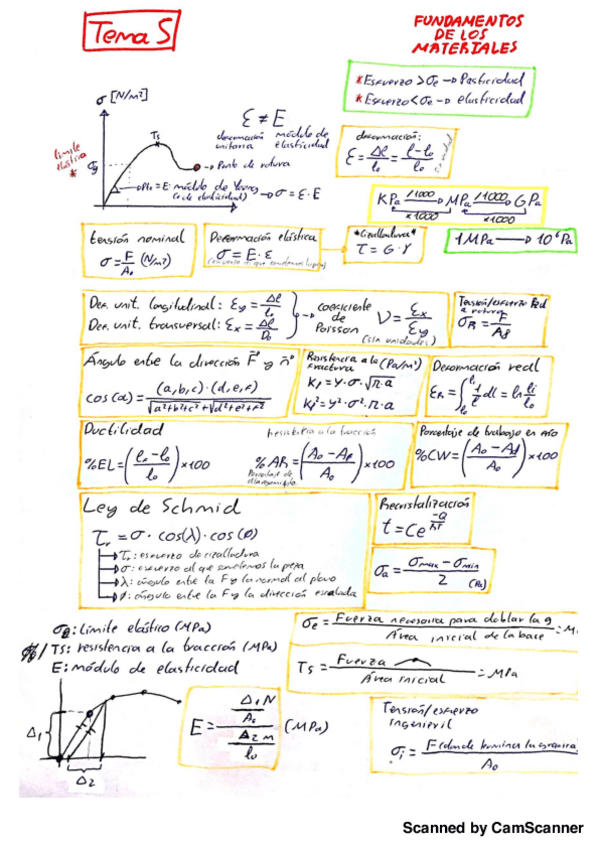 Tema 5
FUNDAMENTOS
DE LOS
MATERIALES
* Esfuerzo > σe → Plasticidad
* Esfuerzo < σe → elasticidad
σ [N/m²]
Ts
límite
elástico
*
σy
→ Punto de rotura
→ Pte = E: módulo de Young → σ = ε · E
(o de elasticidad)
ε ≠ E
deformación módulo de
unitaria elasticidad
deformación:
ε = Δl/l₀ = l - l₀/l₀
KPa /1000 → MPa /1000 → GPa
x1000 x1000
1 MPa → 10⁶ Pa
tensión nominal
σ = F/A₀ (N/m²)
Deformación elástica
σ = E · ε
*Cizalladura*
τ = G · γ
Def. unit. longitudinal: εy = Δl/l₀
Def. unit. transversal: εx = Δl/D₀
→ coeficiente
de
Poisson
ν = εx/εy
(sin unidades)
Tensión/esfuerzo Red
a rotura
σR = F/Af
Ángulo entre la dirección F y n
cos(α) = (a,b,c)·(d,e,f) / √a²+b²+c² + √d²+e²+f²
Resistencia a la fractura (Pa/m²)
K₁ = y · σ · √π·a
K₁² = y² · σ² · π · a
Deformación real
εR = ∫ 1/l dl = ln li/l₀
Ductilidad
%EL = (lf - l₀/l₀) x100
resistencia a la tracción
%AR = (A₀ - Af/A₀) x100
Porcentaje de trabajo en frío
%CW = (A₀ - Ad/A₀) x100
Ley de Schmid
τr = σ · cos(λ) · cos(ϕ)
→ τr: esfuerzo de cizalladura
→ σ: esfuerzo al que sometemos la pieza
→ λ: ángulo entre la F y la normal al plano
→ ϕ: ángulo entre la F y la dirección
Recristalización
t = Ce^(-Q/RT)
σa = σmax - σmin / 2 (Pa)
σe: Límite elástico (MPa)
TS: resistencia a la tracción (MPa)
E: módulo de elasticidad
σe = Fuerza necesaria para doblar la / Área inicial de la base = M
Ts = Fuerza / Área inicial = MPa
Δ1
Δ2
E = Δ1 N/A₀ / Δ2 m/l₀ (MPa)
Tensión/esfuerzo
ingenieril
σi = F (donde termina la / A₀
Scanned by CamScanner